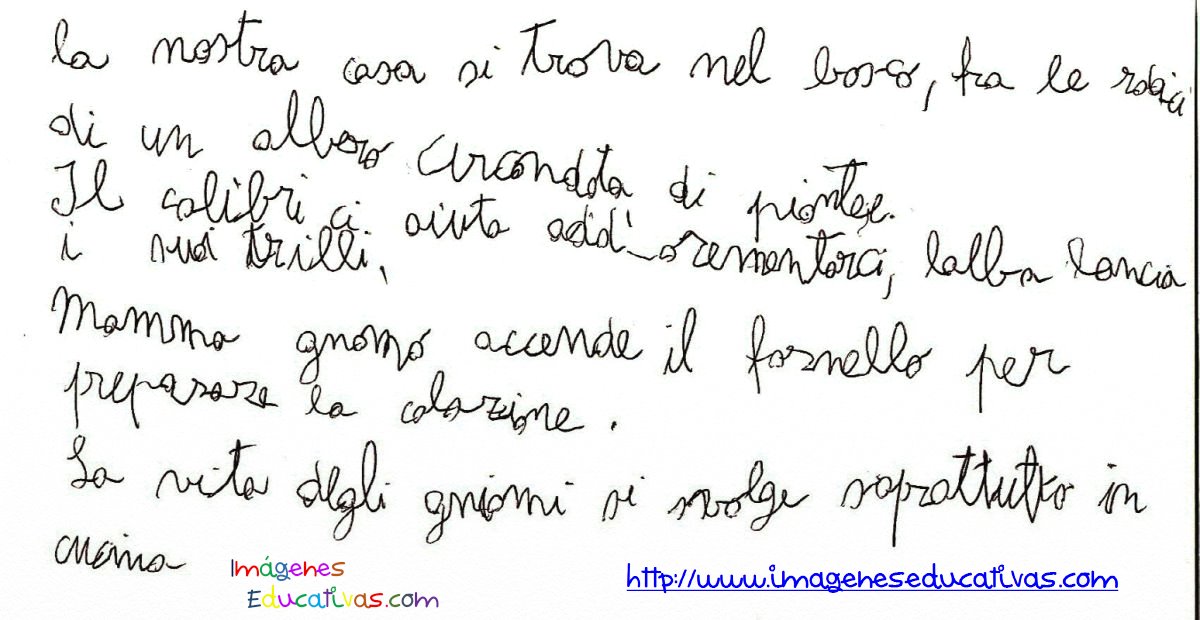 la nostra casa si trova nel bosco, fra le radici
di un albero circondata di piantege.
Il colibri ci aiuta add'orementarci, lalba lancia
i suoi trilli,
Mamma gnomo accende il fornello per
preparare la colazione.
La vita degli gniomi si svolge soprattutto in
cucina
Imágenes
Educativas.com
http://www.imageneseducativas.com